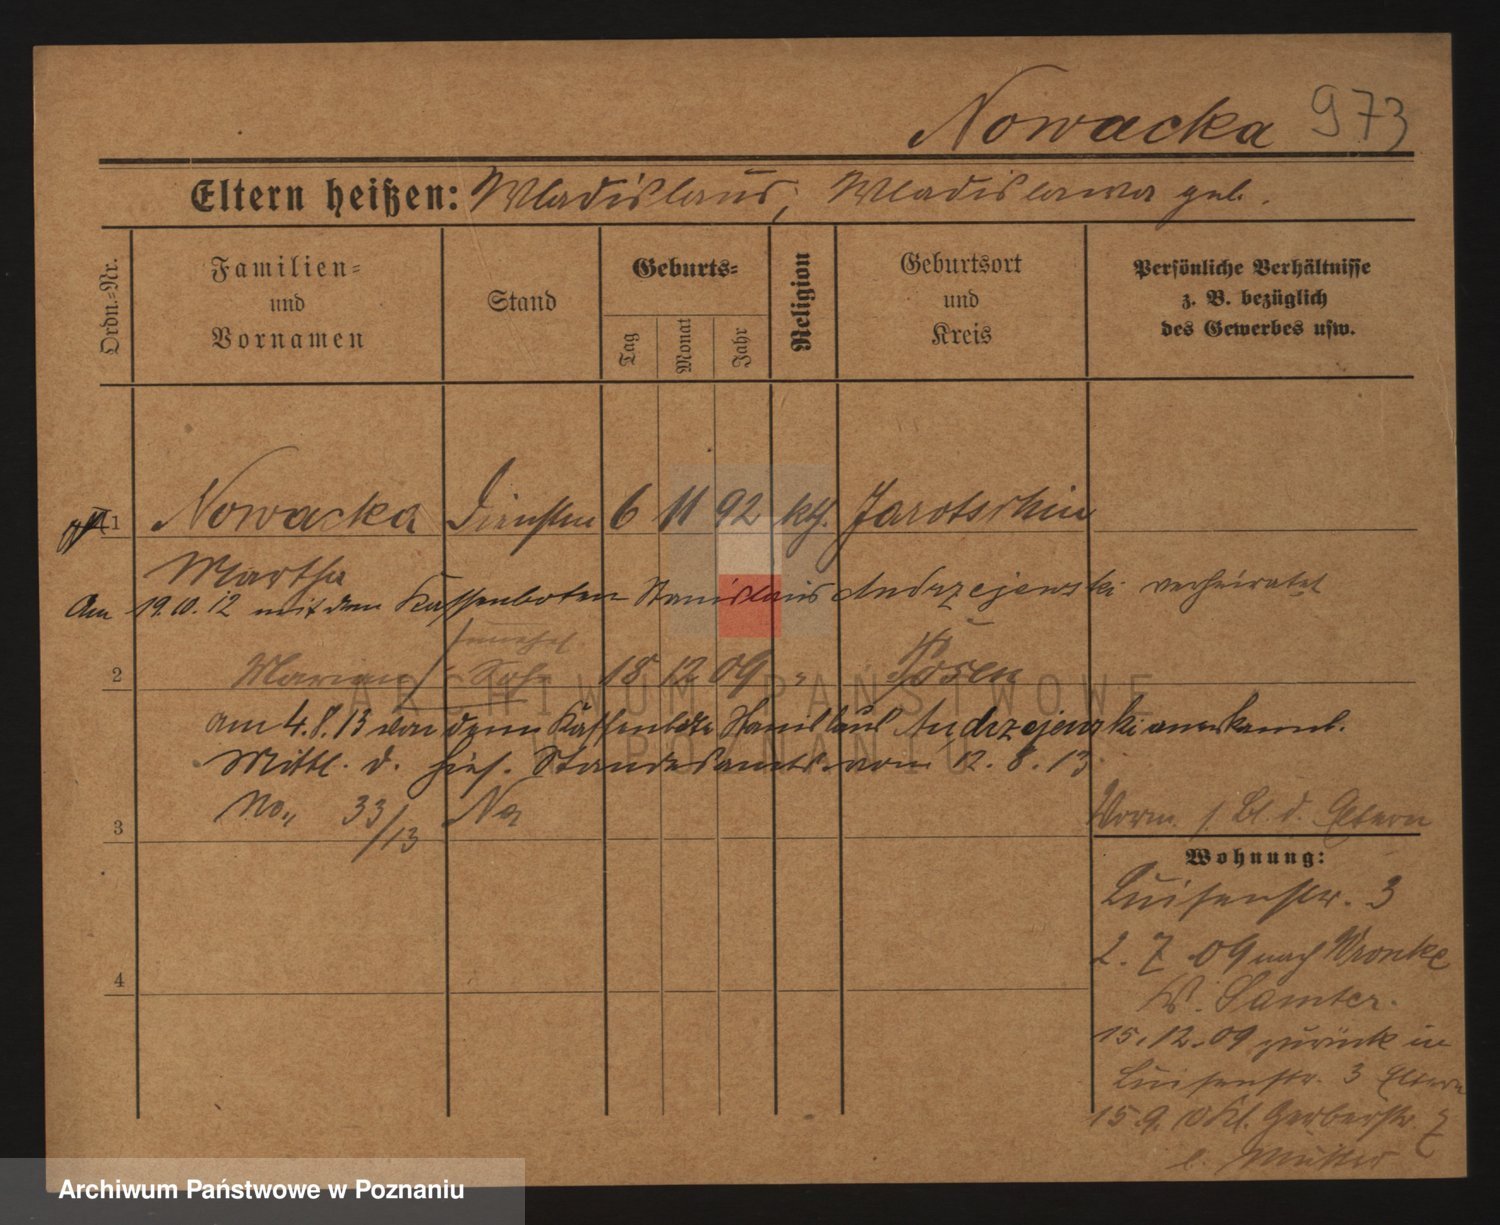 Nowacka 973
Eltern heißen: Wladislaus, Wladislawa geb.
Ordn.-Nr.
Familien-
und
Vornamen
Stand
Geburts-
Tag
Monat
Jahr
Religion
Geburtsort
und
Kreis
Persönliche Verhältnisse
z. B. bezüglich
des Gewerbes usw.
1 Nowacka 6 11 92 kth. Jarotschin
Martha
Am 19.10.12 mit dem Kassenboten Stanislaus Andrzejewski verheiratet
unehel.
2 Marian Sohn 18 12 09 " Posen
am 4.8.13 von dem Kassenbote Stanislaus Andrzejewski anerkannt.
Mittl. d. hies. Standesamts vom 12.8.13
No. 33/13
3
Vorm. s. Bl. d. Eltern
Wohnung:
Luisenstr. 3
2. 7. 09 nach Wronke
4
K. Samter.
15.12.09 zurück in
Luisenstr. 3 Eltern
15 9. Gerberstr. 7
b. Mutter
ARCHIWUM PAŃSTWOWE
W POZNANIU
Archiwum Państwowe w Poznaniu